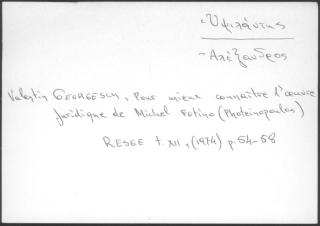 Ὑψηλάντης
- Ἀλέξανδρος
Valentin GEORGESCU, Pour mieux connaître l'oeuvre
juridique de Michel Fotino (Photeinopoulos)
RESEE t. XII, (1974) p. 54-58